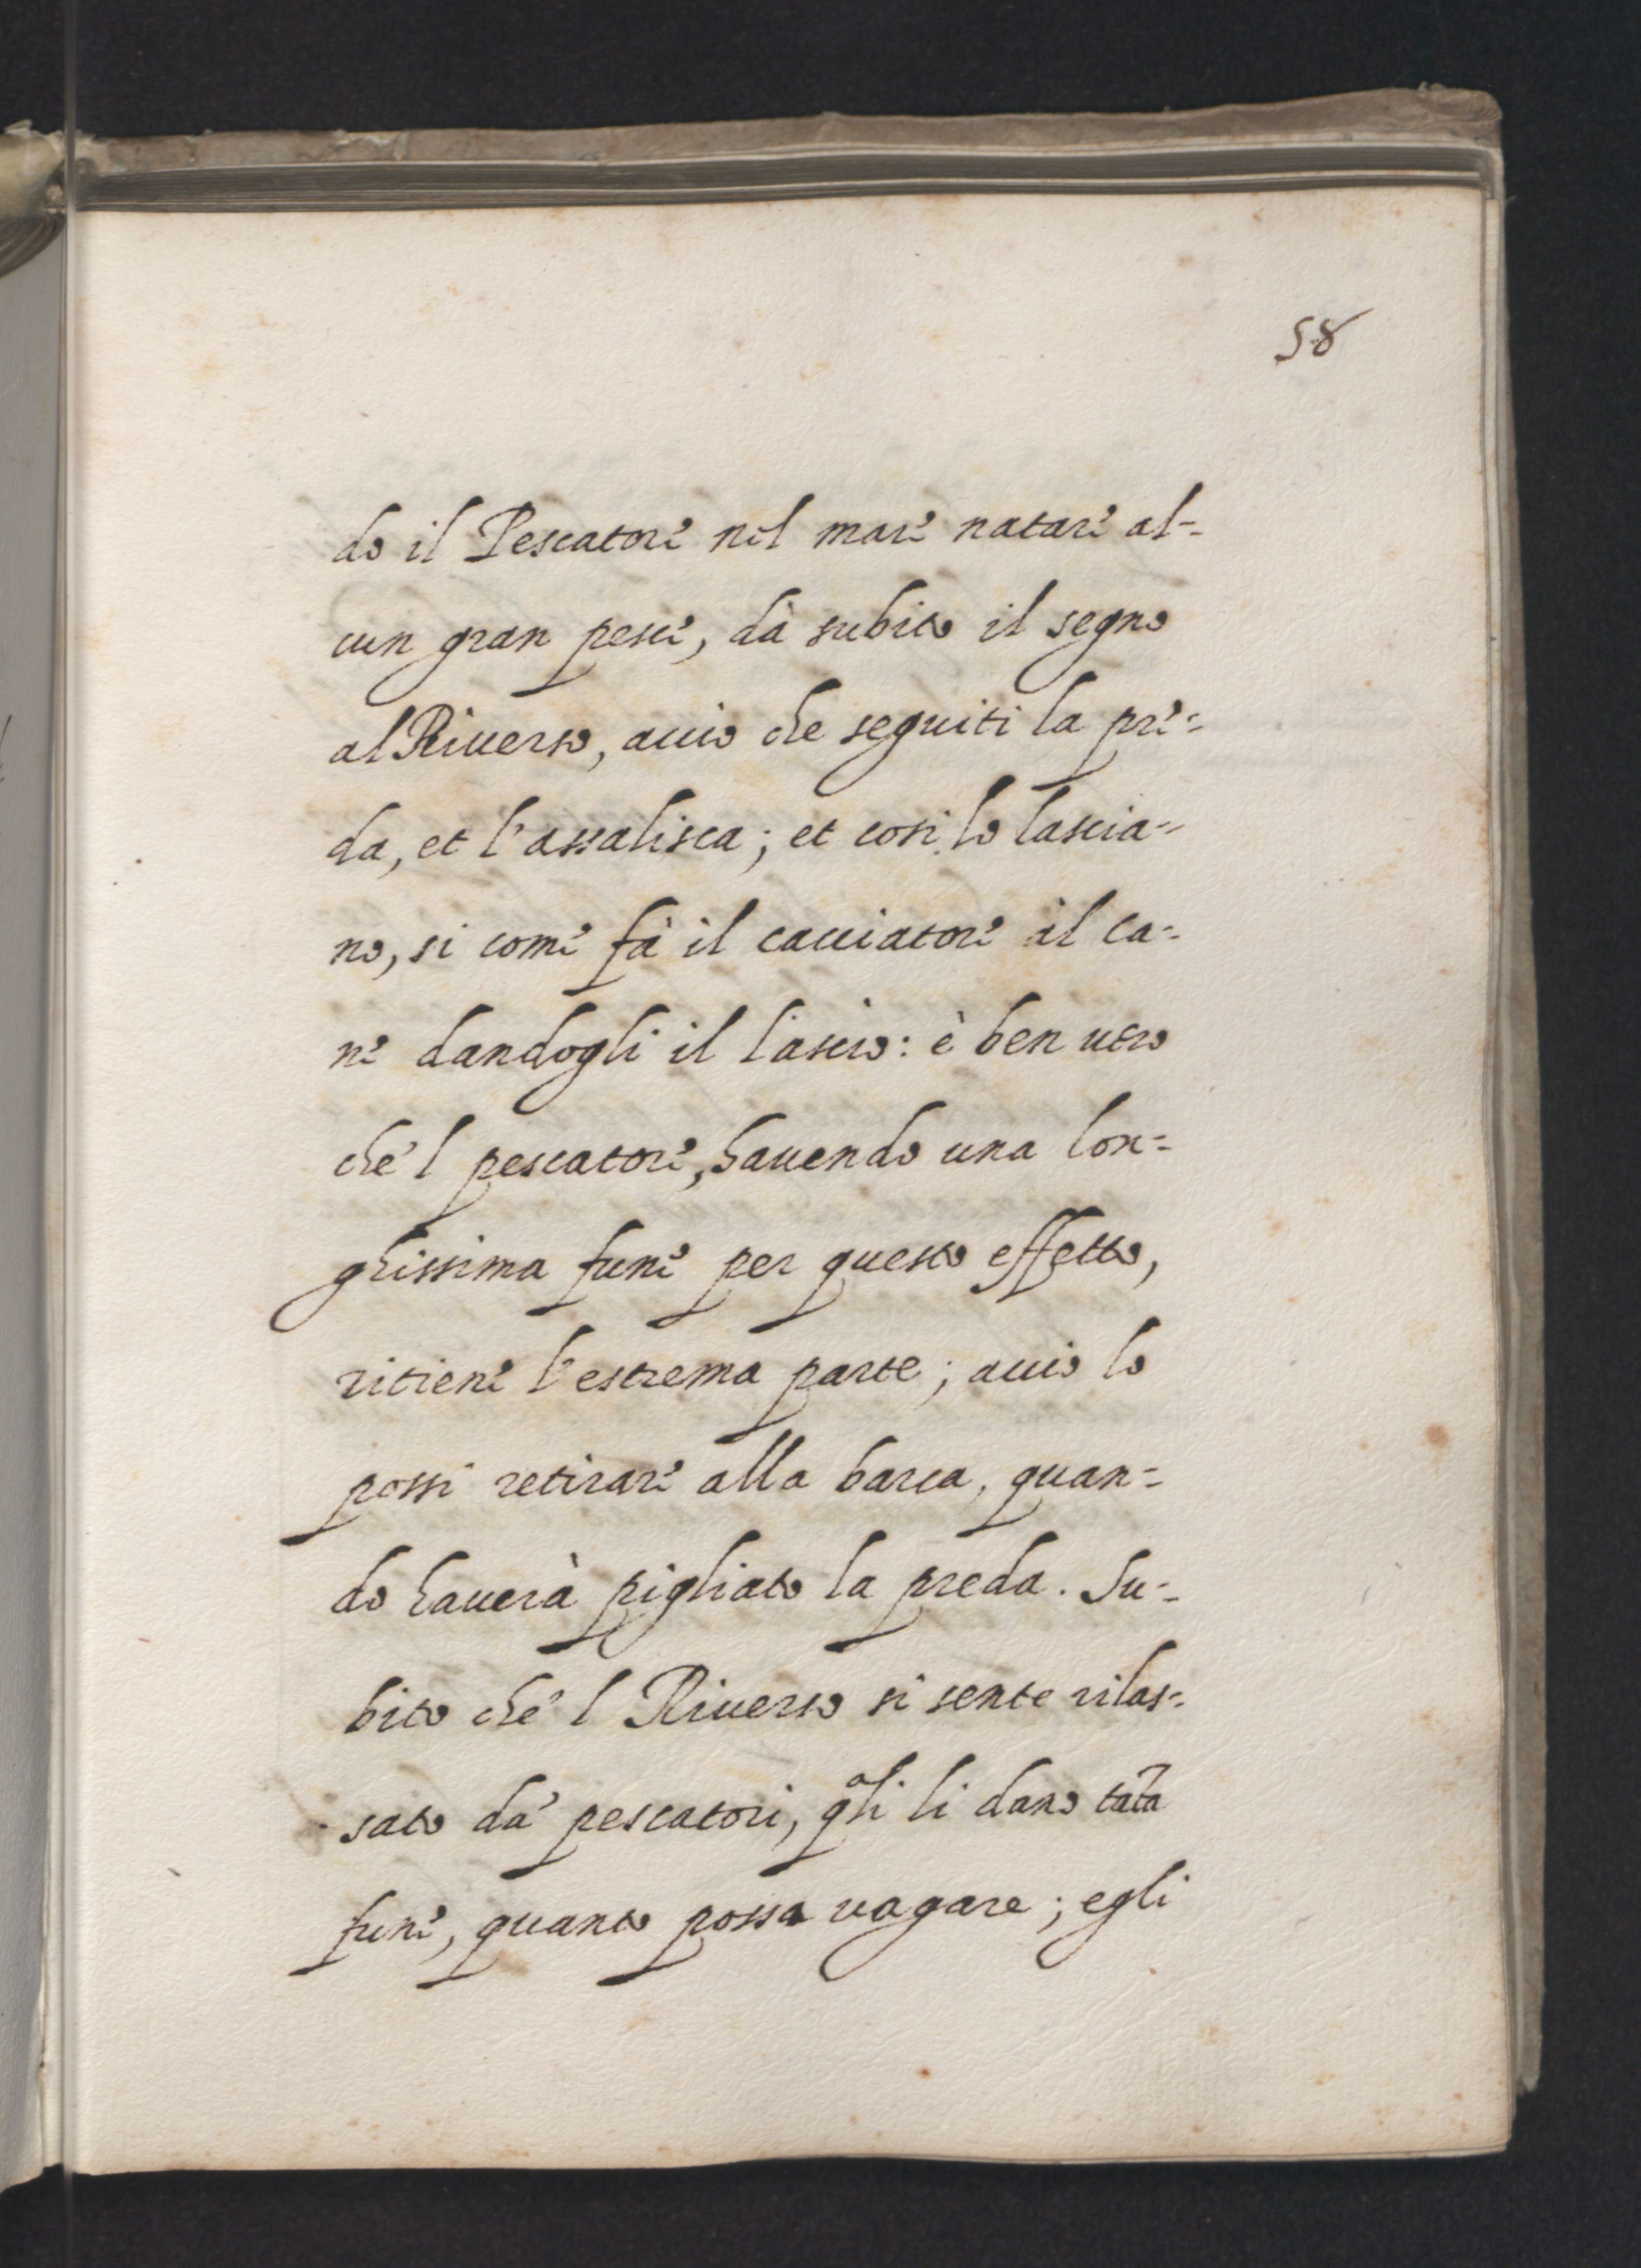 58
do il Pescatore nel mare natare al-
cun gran pesce, dà subito il segno
al Riuerso, accio che seguiti la pre-
da, et l'assalisca; et cosi lo lascia-
no, si come fà il cacciatore àl ca-
ne dandogli il lascio: è ben uero
che'l pescatore, hauendo una lon-
ghissima fune per questo effetto,
ritiene l'estrema parte; accio lo
possi retirare alla barca, quan-
do hauerà pigliato la preda. Su-
bito che'l Riuerso si sente rilas-
sato da' pescatori, qli li dano tãta
fune, quanto possa uagare; egli